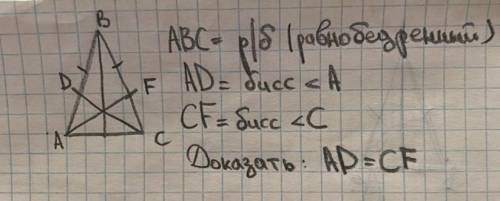 B
ABC = р/б (равнобедренный)
D F
AD = бисс < A
A C
CF = бисс < C
Доказать: AD = CF